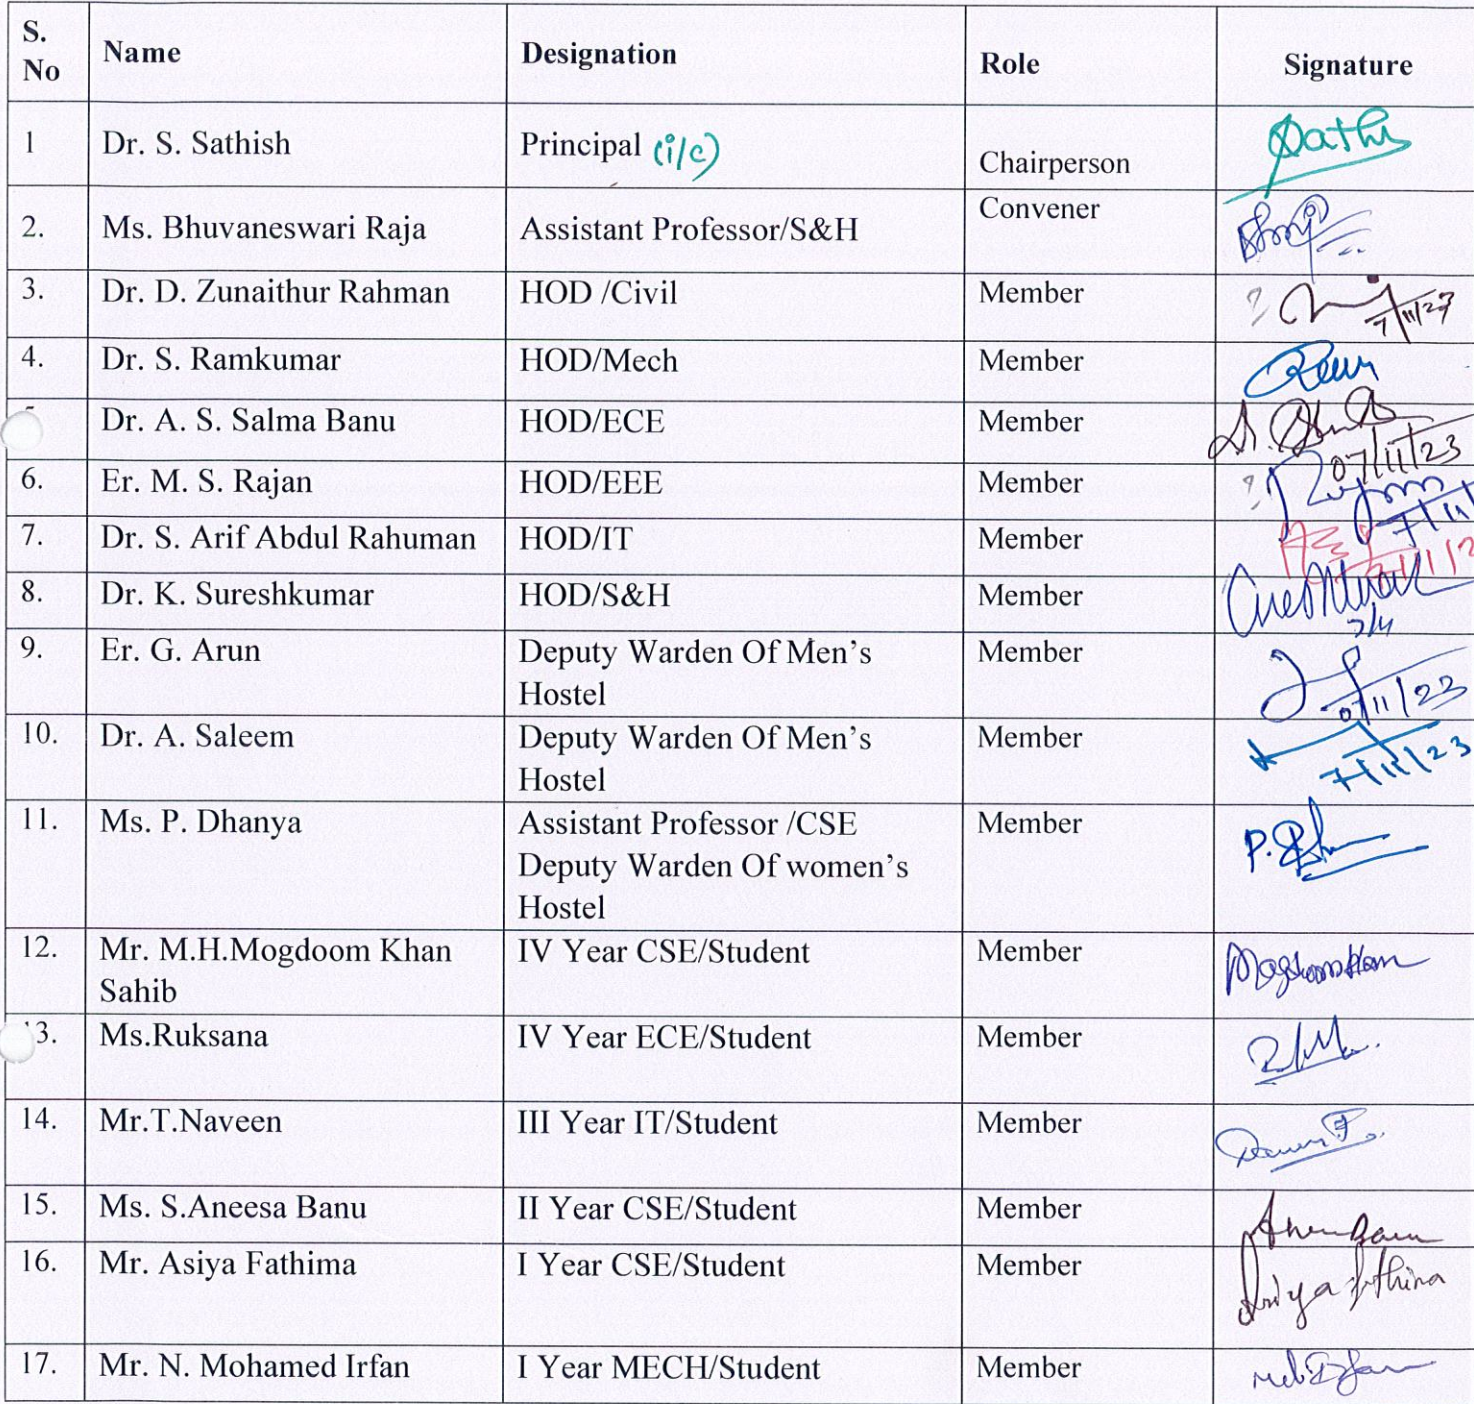 S. No Name Designation Role Signature
1 Dr. S. Sathish Principal (i/c) Chairperson Sathi
2. Ms. Bhuvaneswari Raja Assistant Professor/S&H Convener
3. Dr. D. Zunaithur Rahman HOD /Civil Member 7/11/23
4. Dr. S. Ramkumar HOD/Mech Member
Dr. A. S. Salma Banu HOD/ECE Member 07/11/23
6. Er. M. S. Rajan HOD/EEE Member
7. Dr. S. Arif Abdul Rahuman HOD/IT Member
8. Dr. K. Sureshkumar HOD/S&H Member
9. Er. G. Arun Deputy Warden Of Men's Member
Hostel
10. Dr. A. Saleem Deputy Warden Of Men's Member 7/11/23
Hostel
11. Ms. P. Dhanya Assistant Professor /CSE Member
Deputy Warden Of women's
Hostel
12. Mr. M.H.Mogdoom Khan IV Year CSE/Student Member
Sahib
13. Ms.Ruksana IV Year ECE/Student Member
14. Mr.T.Naveen III Year IT/Student Member
15. Ms. S.Aneesa Banu II Year CSE/Student Member
16. Mr. Asiya Fathima I Year CSE/Student Member
17. Mr. N. Mohamed Irfan I Year MECH/Student Member